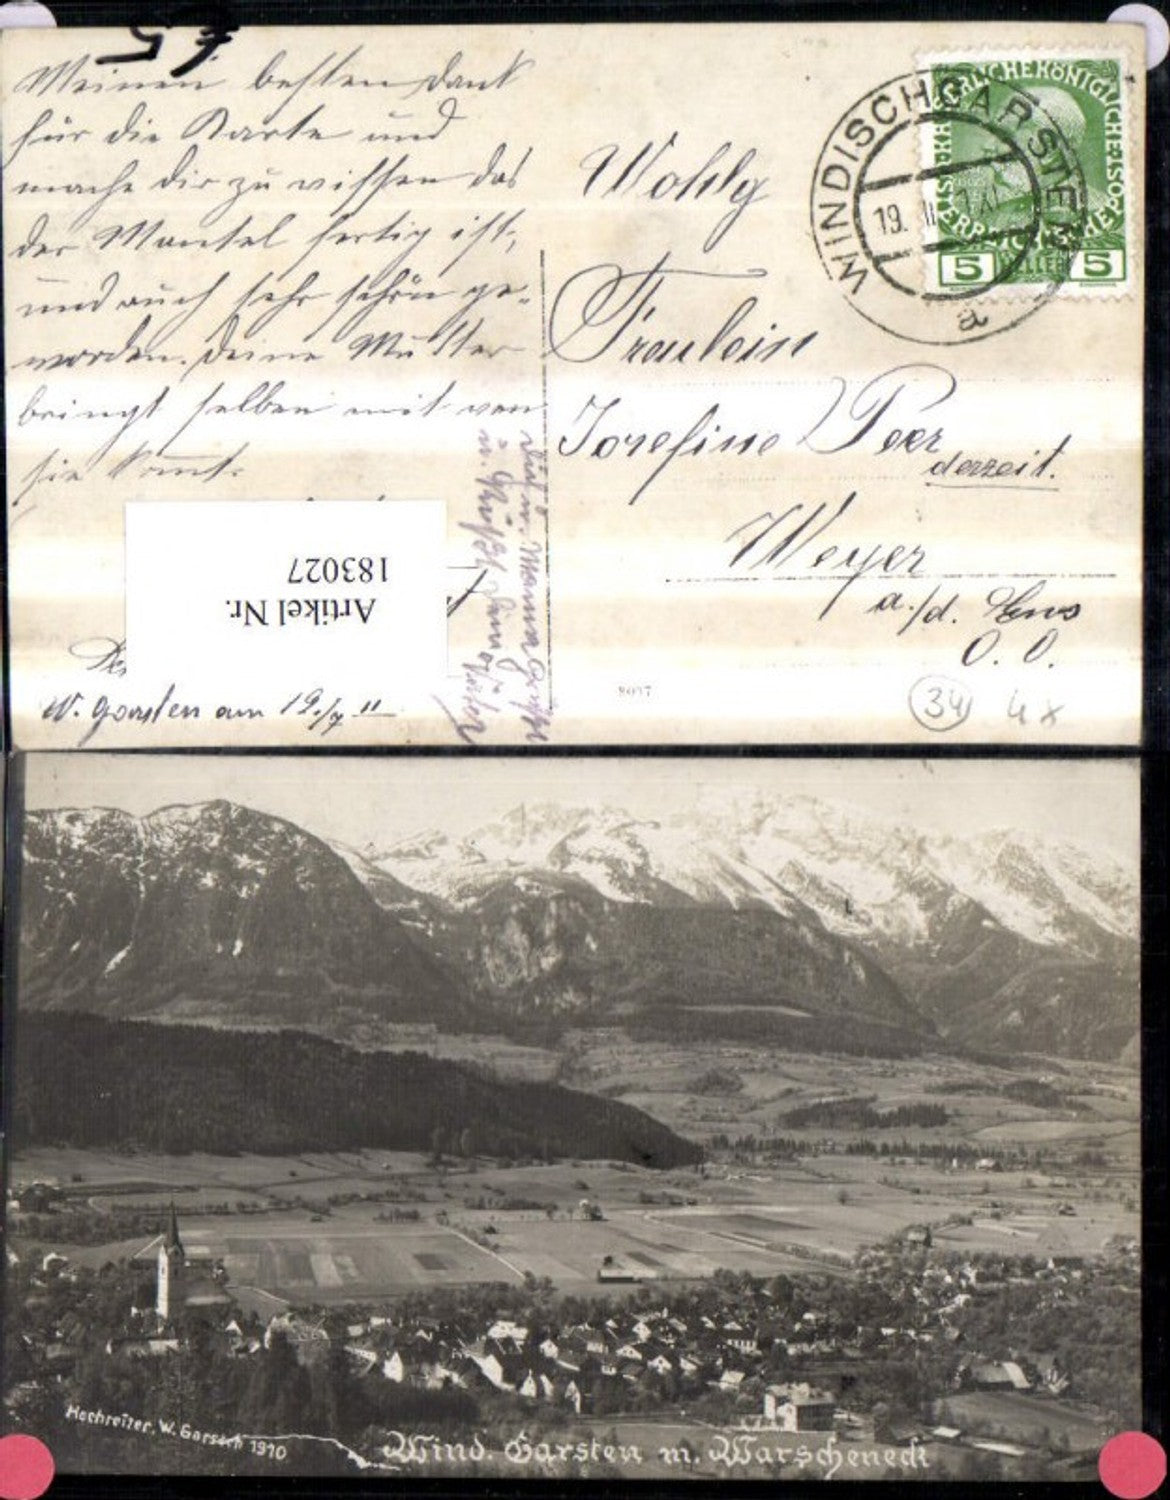 Meinen besten Dank
für die Karte und
mache dir zu wissen das
der Mantel fertig ist,
und auch sehr schön ge-
worden. Deine Mutter
bringt selben mit wen
sie kommt.
Artikel Nr.
183027
W. Garsten am 19./7 11
Wohlg
Fraulein
Josefine Peer
derzeit.
Weyer
a./d. Enns
O. Ö.
WINDISCHGARSTEN
19. XI
a
KAISERLICHE KÖNIGLICHE ÖSTERREICHISCHE
5 HELLER 5
8097
34 4x
Hochreiter, W. Garsten 1910
Wind. Garsten m. Warscheneck